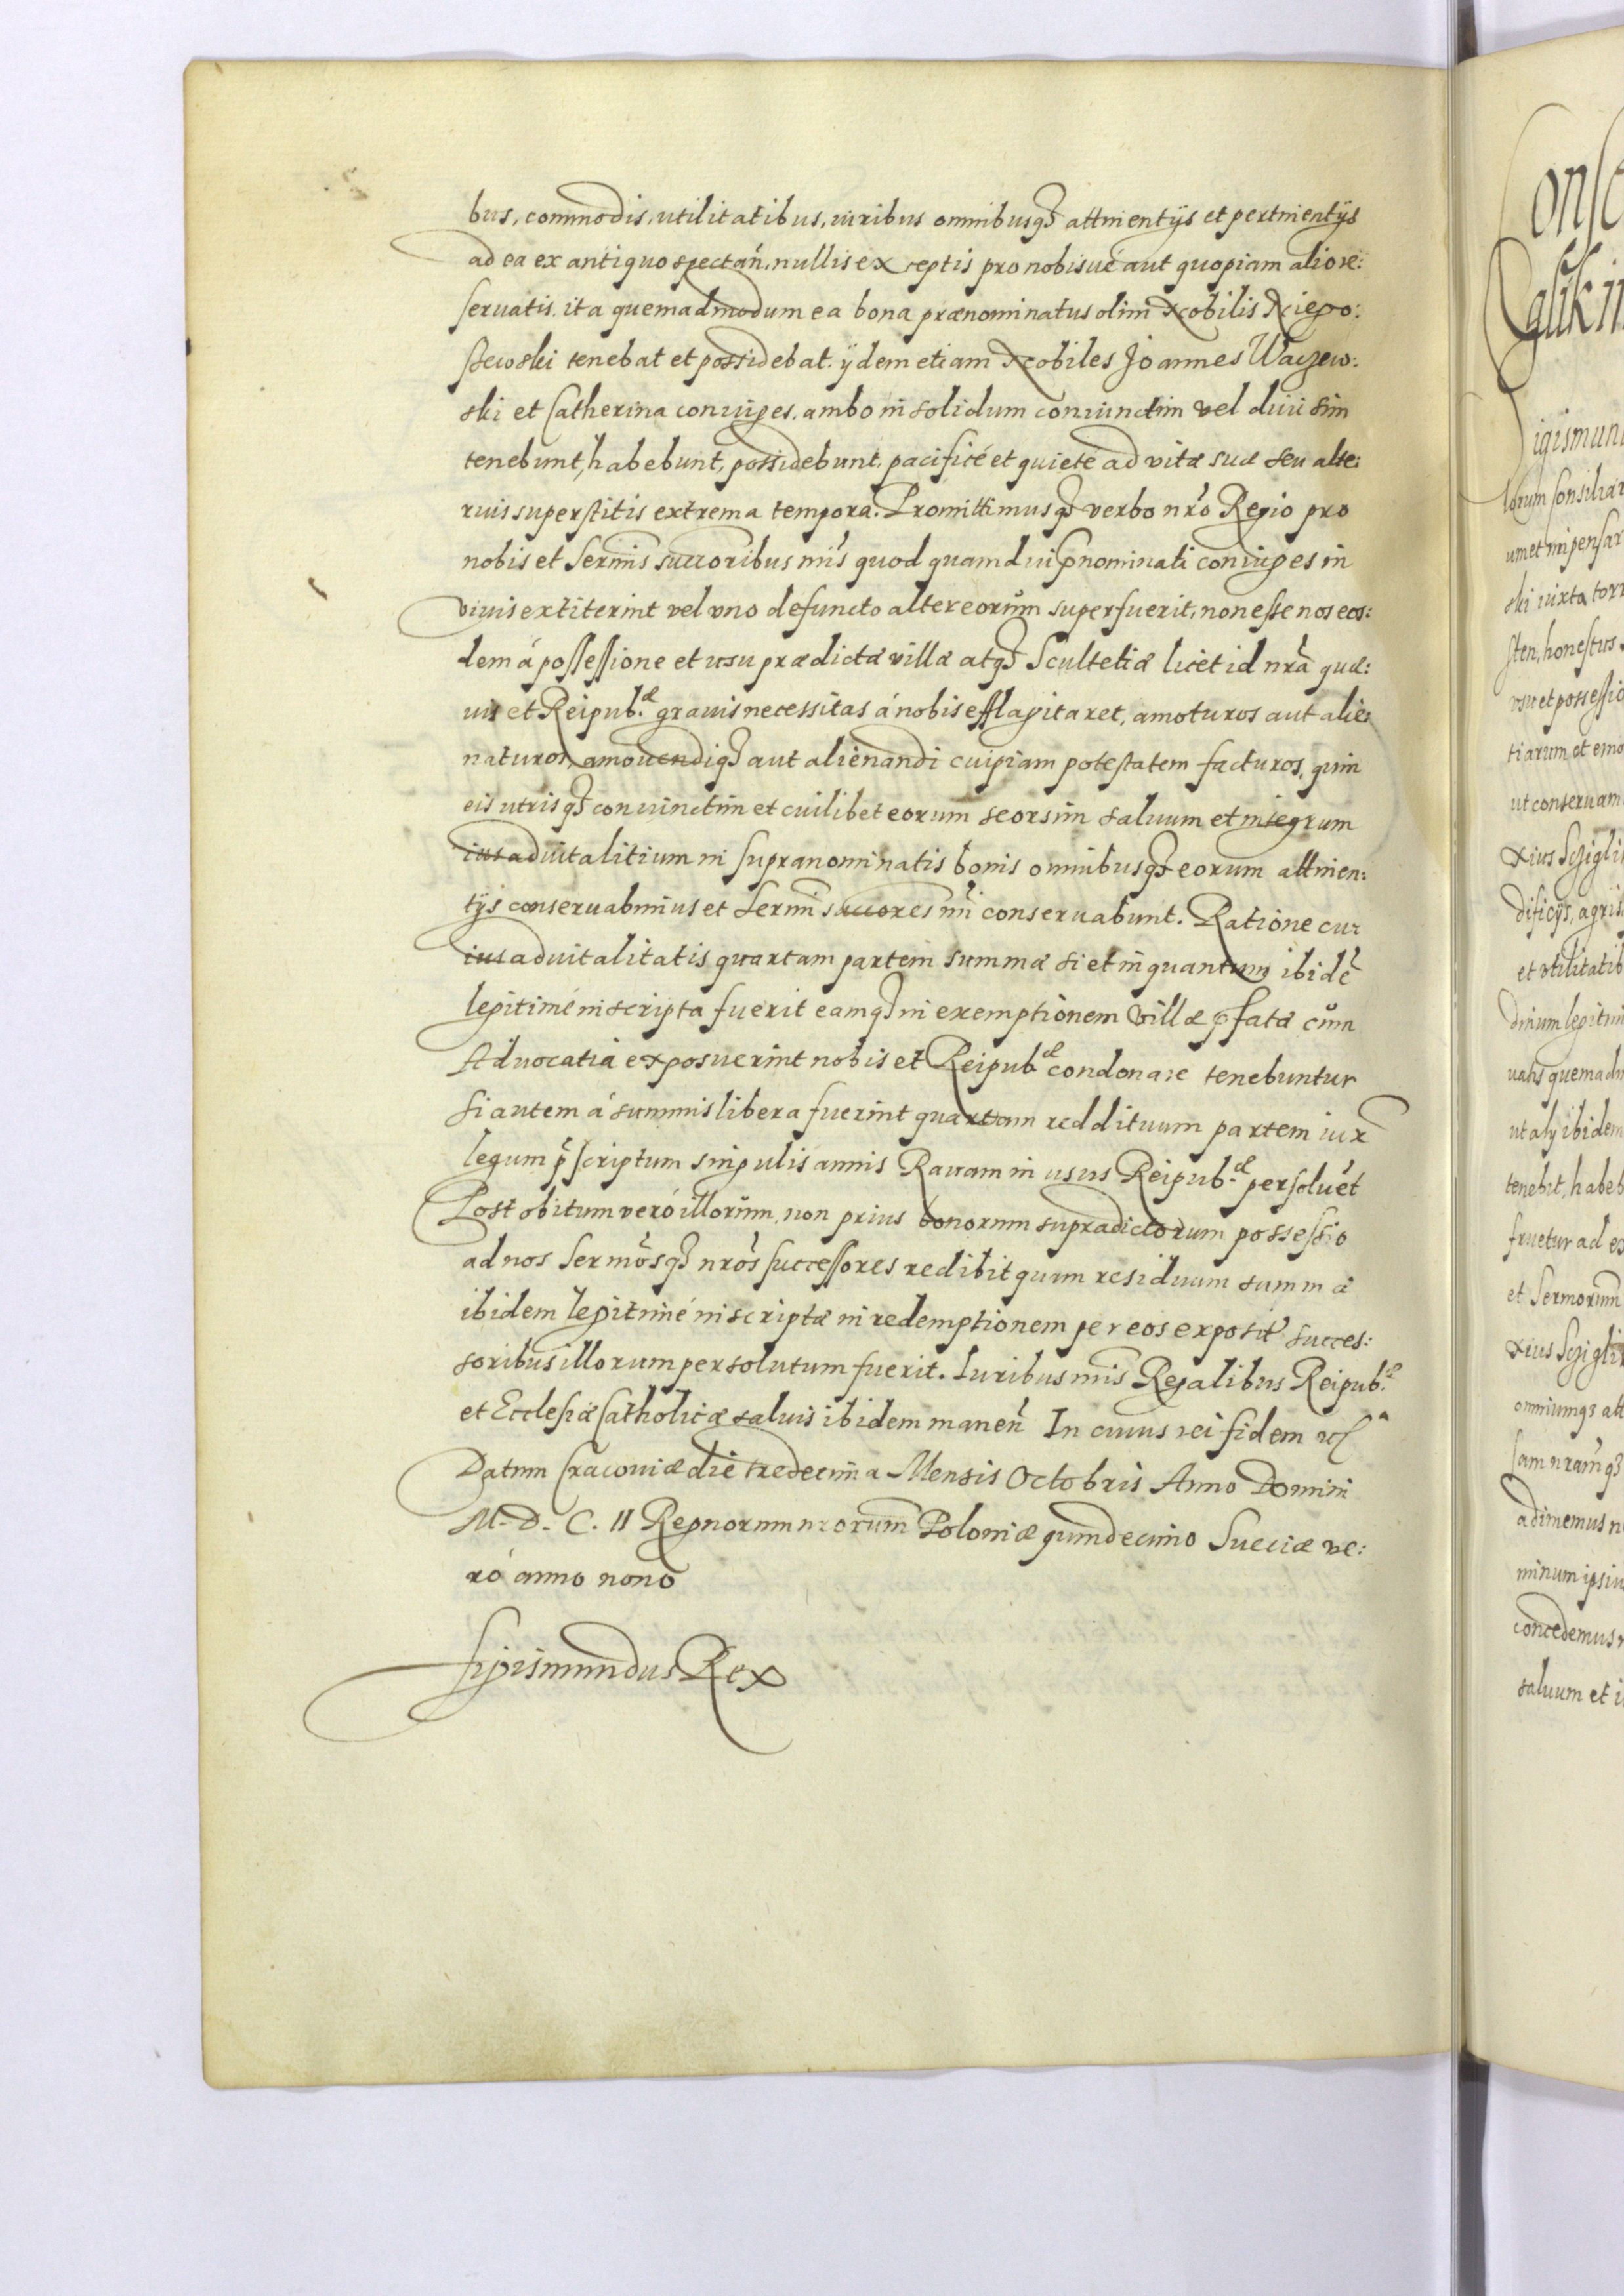 bus, commodis, utilitatibus, iuribus omnibusq3 attinentijs et pertinentijs
ad ea ex antiquo spectan̄. nullis exceptis pro nobisue aut quopiam alio re:
seruatis. ita quemadmodum ea bona prænominatus olim Nobilis Niego:
stewski tenebat et possidebat. ijdem etiam Nobiles Joannes Wayzew:
ski et Catherina coniuges. ambo in solidum coniunctim vel diuisim
tenebunt, habebunt, possidebunt, pacificé et quieté ad vitæ suæ seu alte:
rius superstitis extrema tempora. Promittimusq3 verbo nr̄o Regio pro
nobis et Sermīs succoribus nr̄is quod quamdiu p̄nominati coniuges in
viuis extiterint vel vno defuncto alter eorům superfuerit, non esse nos eos:
dem á possessione et usu prædictæ villæ atq3 Scultetiæ licet id nr̄a quæ:
uis et Reipub.æ grauis necessitas á nobis efflagitaret, amoturos aut alie:
naturos, amouendiq3 aut alienandi cuipiam potestatem facturos, quin
eis utrisq3 conuinctim et cuilibet eorum seorsim saluum et integrum
ius aduitalitium in supranominatis bonis omnibusq3 eorum attinen:
tijs conseruabimus et Sermī succores nr̄i conseruabunt. Ratione cu:
ius aduitalitatis quartam partem summæ si et in quantum ibidē
legitimé inscripta fuerit eamq3 in exemptionem villæ p̄fatæ cům
Aduocatia exposuerint nobis et Reipub.æ condonare tenebuntur
si autem á summis libera fuerint quartam reddituum partem iux
legum p̄scriptum singulis annis Rauam in usus Reipub.æ persoluēt
Post obitum veró illorům, non prius bonorum supradictorum possessio
ad nos Sermōsq3 nr̄os successores redibit quam residuum summæ
ibidem legitimé inscriptæ in redemptionem per eos expositæ succes:
soribus illorum persolutum fuerit. Iuribus nr̄is Regalibus Reipub.æ
et Ecclesiæ Catholicæ saluis ibidem manen̄ In cuius rei fidem etc
Datum Cracouiæ die tredecima Mensis Octobris Anno Domini
M. D. C. II Regnorum nrorum Poloniæ quindecimo Sueciæ ve:
ró anno nono
Sigismundus Rex
onse
Calikii
Sigismun
lorum Consiliar
um et impensar
ski iuxta torr
sten, honestus
vsu et possessio
tiarum et emo
ut conseruam
xius Szigli
dificijs, agris
et vtilitatib
dinum legitim
uatis quemadm
ut alij ibidem
tenebit, habeb
fruetur ad ex
et Sermorum
xius Szigli
omniumq3 att
Cam nram̄q3
adimemus n
minum ipsiu
concedemus
saluum et i